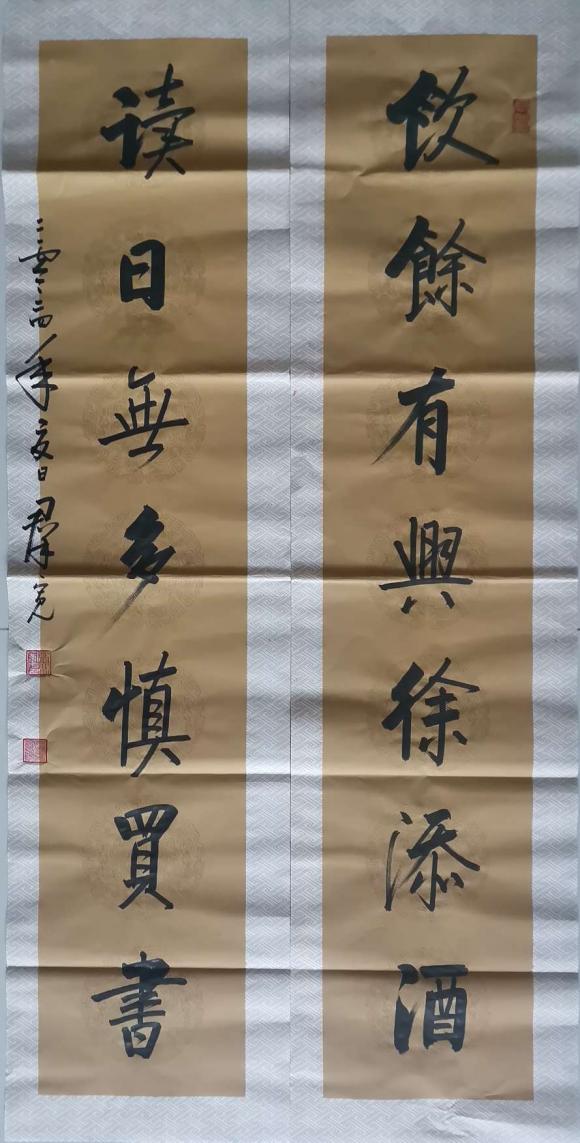 飲餘有興徐添酒
读日無多慎買書
二零二四年夏日